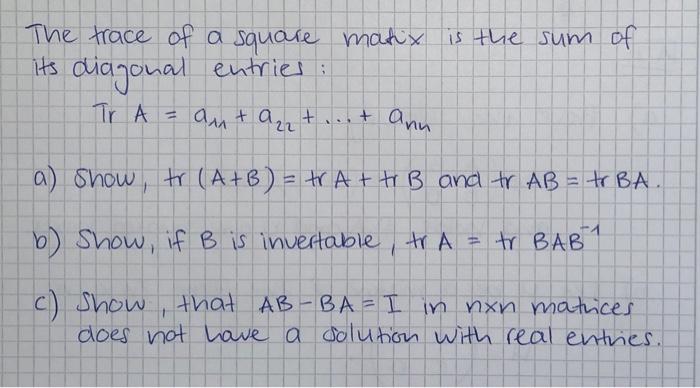 The trace of a square matix is the sum of
its diagonal entries :
Tr A = a₁₁ + a₂₂ + ... + aₙₙ
a) Show, tr (A+B) = tr A + tr B and tr AB = tr BA.
b) Show, if B is invertable, tr A = tr BAB⁻¹
c) Show, that AB - BA = I in nxn matrices
does not have a solution with real entries.